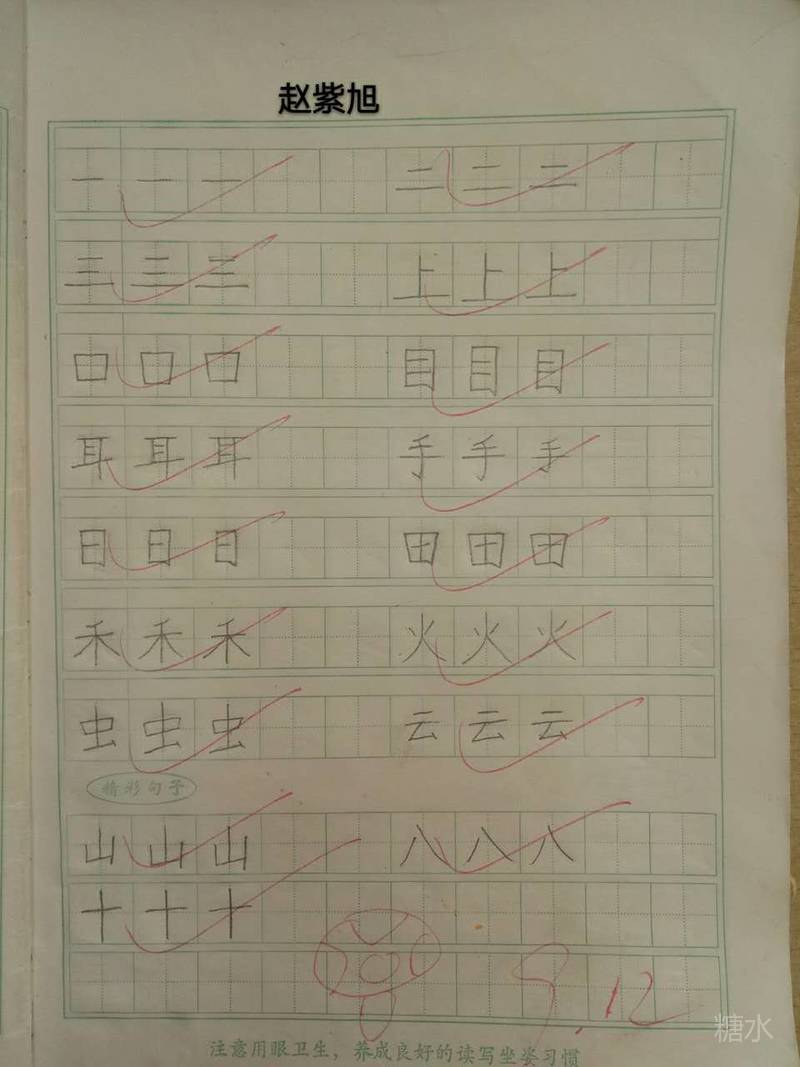 赵紫旭
一 一 一 二 二 二
三 三 三 上 上 上
口 口 口 目 目 目
耳 耳 耳 手 手 手
日 日 日 田 田 田
禾 禾 禾 火 火 火
虫 虫 虫 云 云 云
精彩句子
山 山 山 八 八 八
十 十 十
9.12
糖水
注意用眼卫生，养成良好的读写坐姿习惯